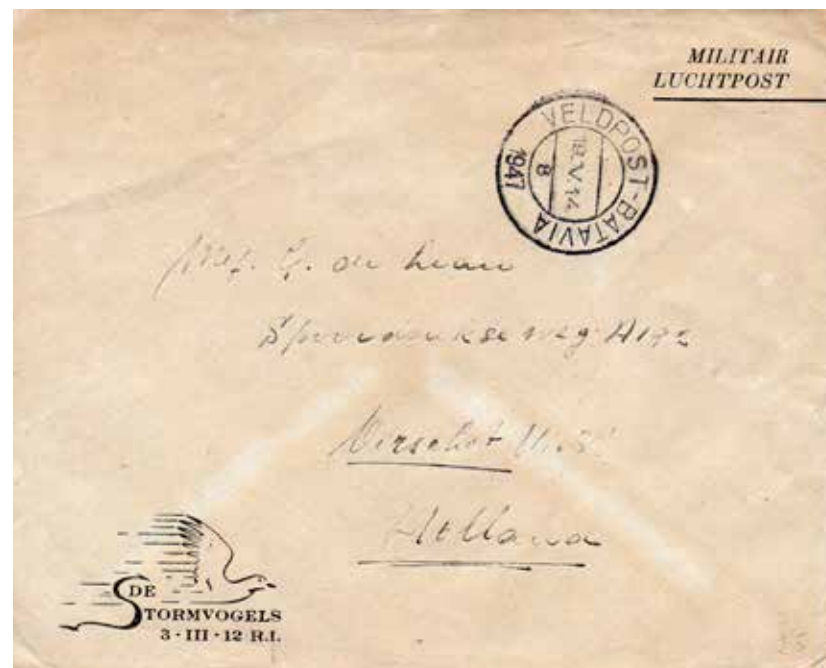 MILITAIR
LUCHTPOST
VELDPOST-BATAVIA
18.V.14
8
1947
Mej. G. de
A192
Oirschot
Holland
DE
STORMVOGELS
3 - III - 12 R.I.